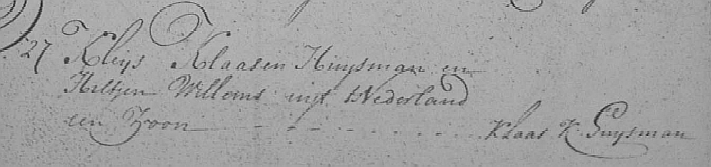 27 Kleijs Klaasen Huijsman en
Hiltjen Willems uijt Nederland
een Zoon - - - - - - Klaas K Huijsman